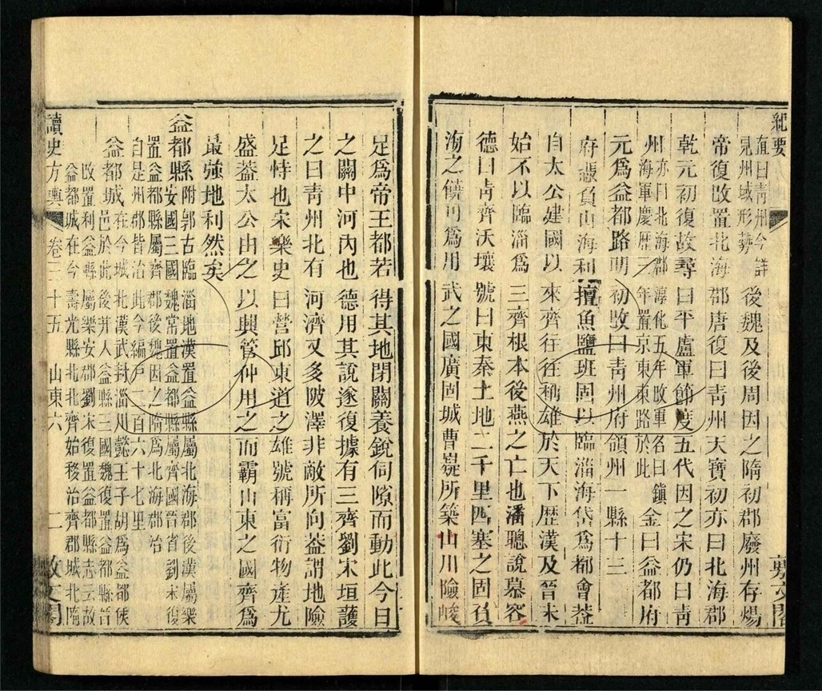 紀要
宜曰青州今詳
兗州域形勢
後魏及後周因之隋初郡廢州存煬
帝復改置北海郡唐復曰青州天寶初亦曰北海郡
乾元初復故尋曰平盧軍節度五代因之宋仍曰青
州
亦曰北海郡淳化五年改軍名曰鎮
海軍慶曆二年置京東東路於此
金曰益都府
元爲益都路明初改曰青州府領州一縣十三
府憑負山海利擅魚鹽班固以臨淄海岱爲都會葢
自太公建國以來齊往往稱雄於天下歷漢及晉未
始不以臨淄爲三齊根本後燕之亡也潘聰說慕容
德曰青齊沃壤號曰東秦土地二千里四塞之固負
海之饒可爲用武之國廣固城曹嶷所築山川險峻
足爲帝王都若得其地閉關養銳伺隙而動此今日
之關中河內也德用其說遂復據有三齊劉宋垣護
之曰青州北有河濟又多陂澤非敵所向葢謂地險
足恃也宋樂史曰營邱東道之雄號稱富衍物產尤
盛葢太公由之以興管仲用之而霸山東之國齊爲
最強地利然矣
益都縣
附郭古臨淄地漢置益縣屬北海郡後漢屬樂
安國三國魏常置益都縣屬齊國晉省劉宋復
置益都縣屬齊郡後魏因之隋爲北海郡治
自是州郡皆治此今編戶二百六十七里
益都城
在今城北漢武封淄川懿王子胡爲益都侯
邑於此後幷入益縣三國魏復置益都縣晉
改置利益縣屬樂安郡劉宋復置益都縣志云故
益都城在今壽光縣北北齊始移治齊郡城北隋
讀史方輿
卷三十五
山東六
二
敷文閣
敷文閣